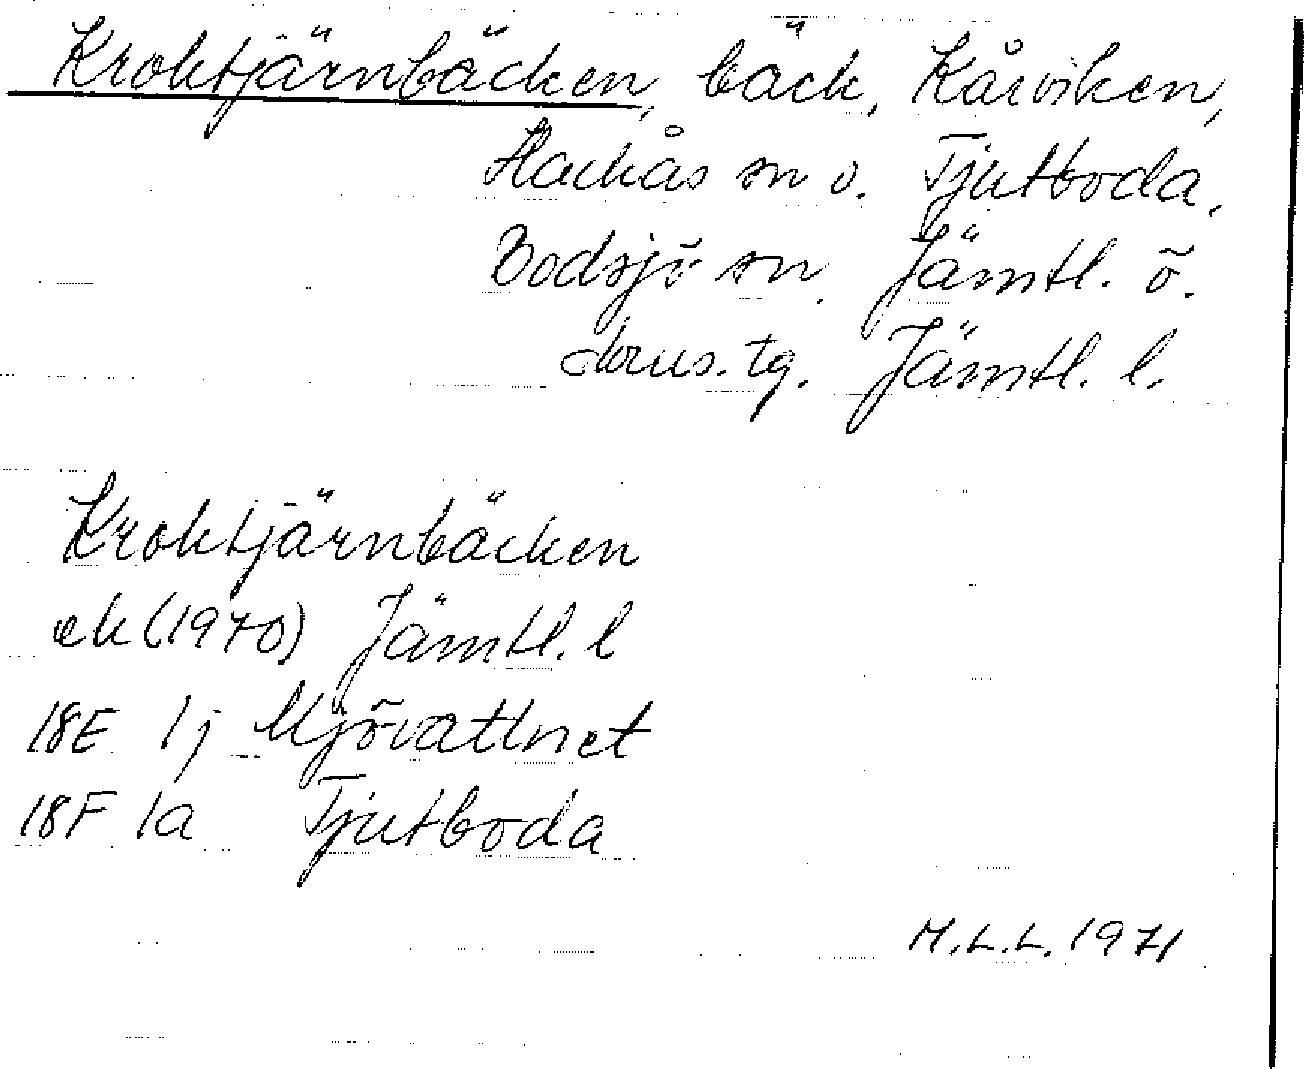 Kroktjärnbäcken, bäck, Kårviken,
Hackås sn o. Tjutboda,
Bodsjö sn. Jämtl. ö.
doms. tg. Jämtl. l.
Kroktjärnbäcken
ek (1970) Jämtl. l
18E 1j Mjövattnet
18F 1a Tjutboda
M.L.L. 1971